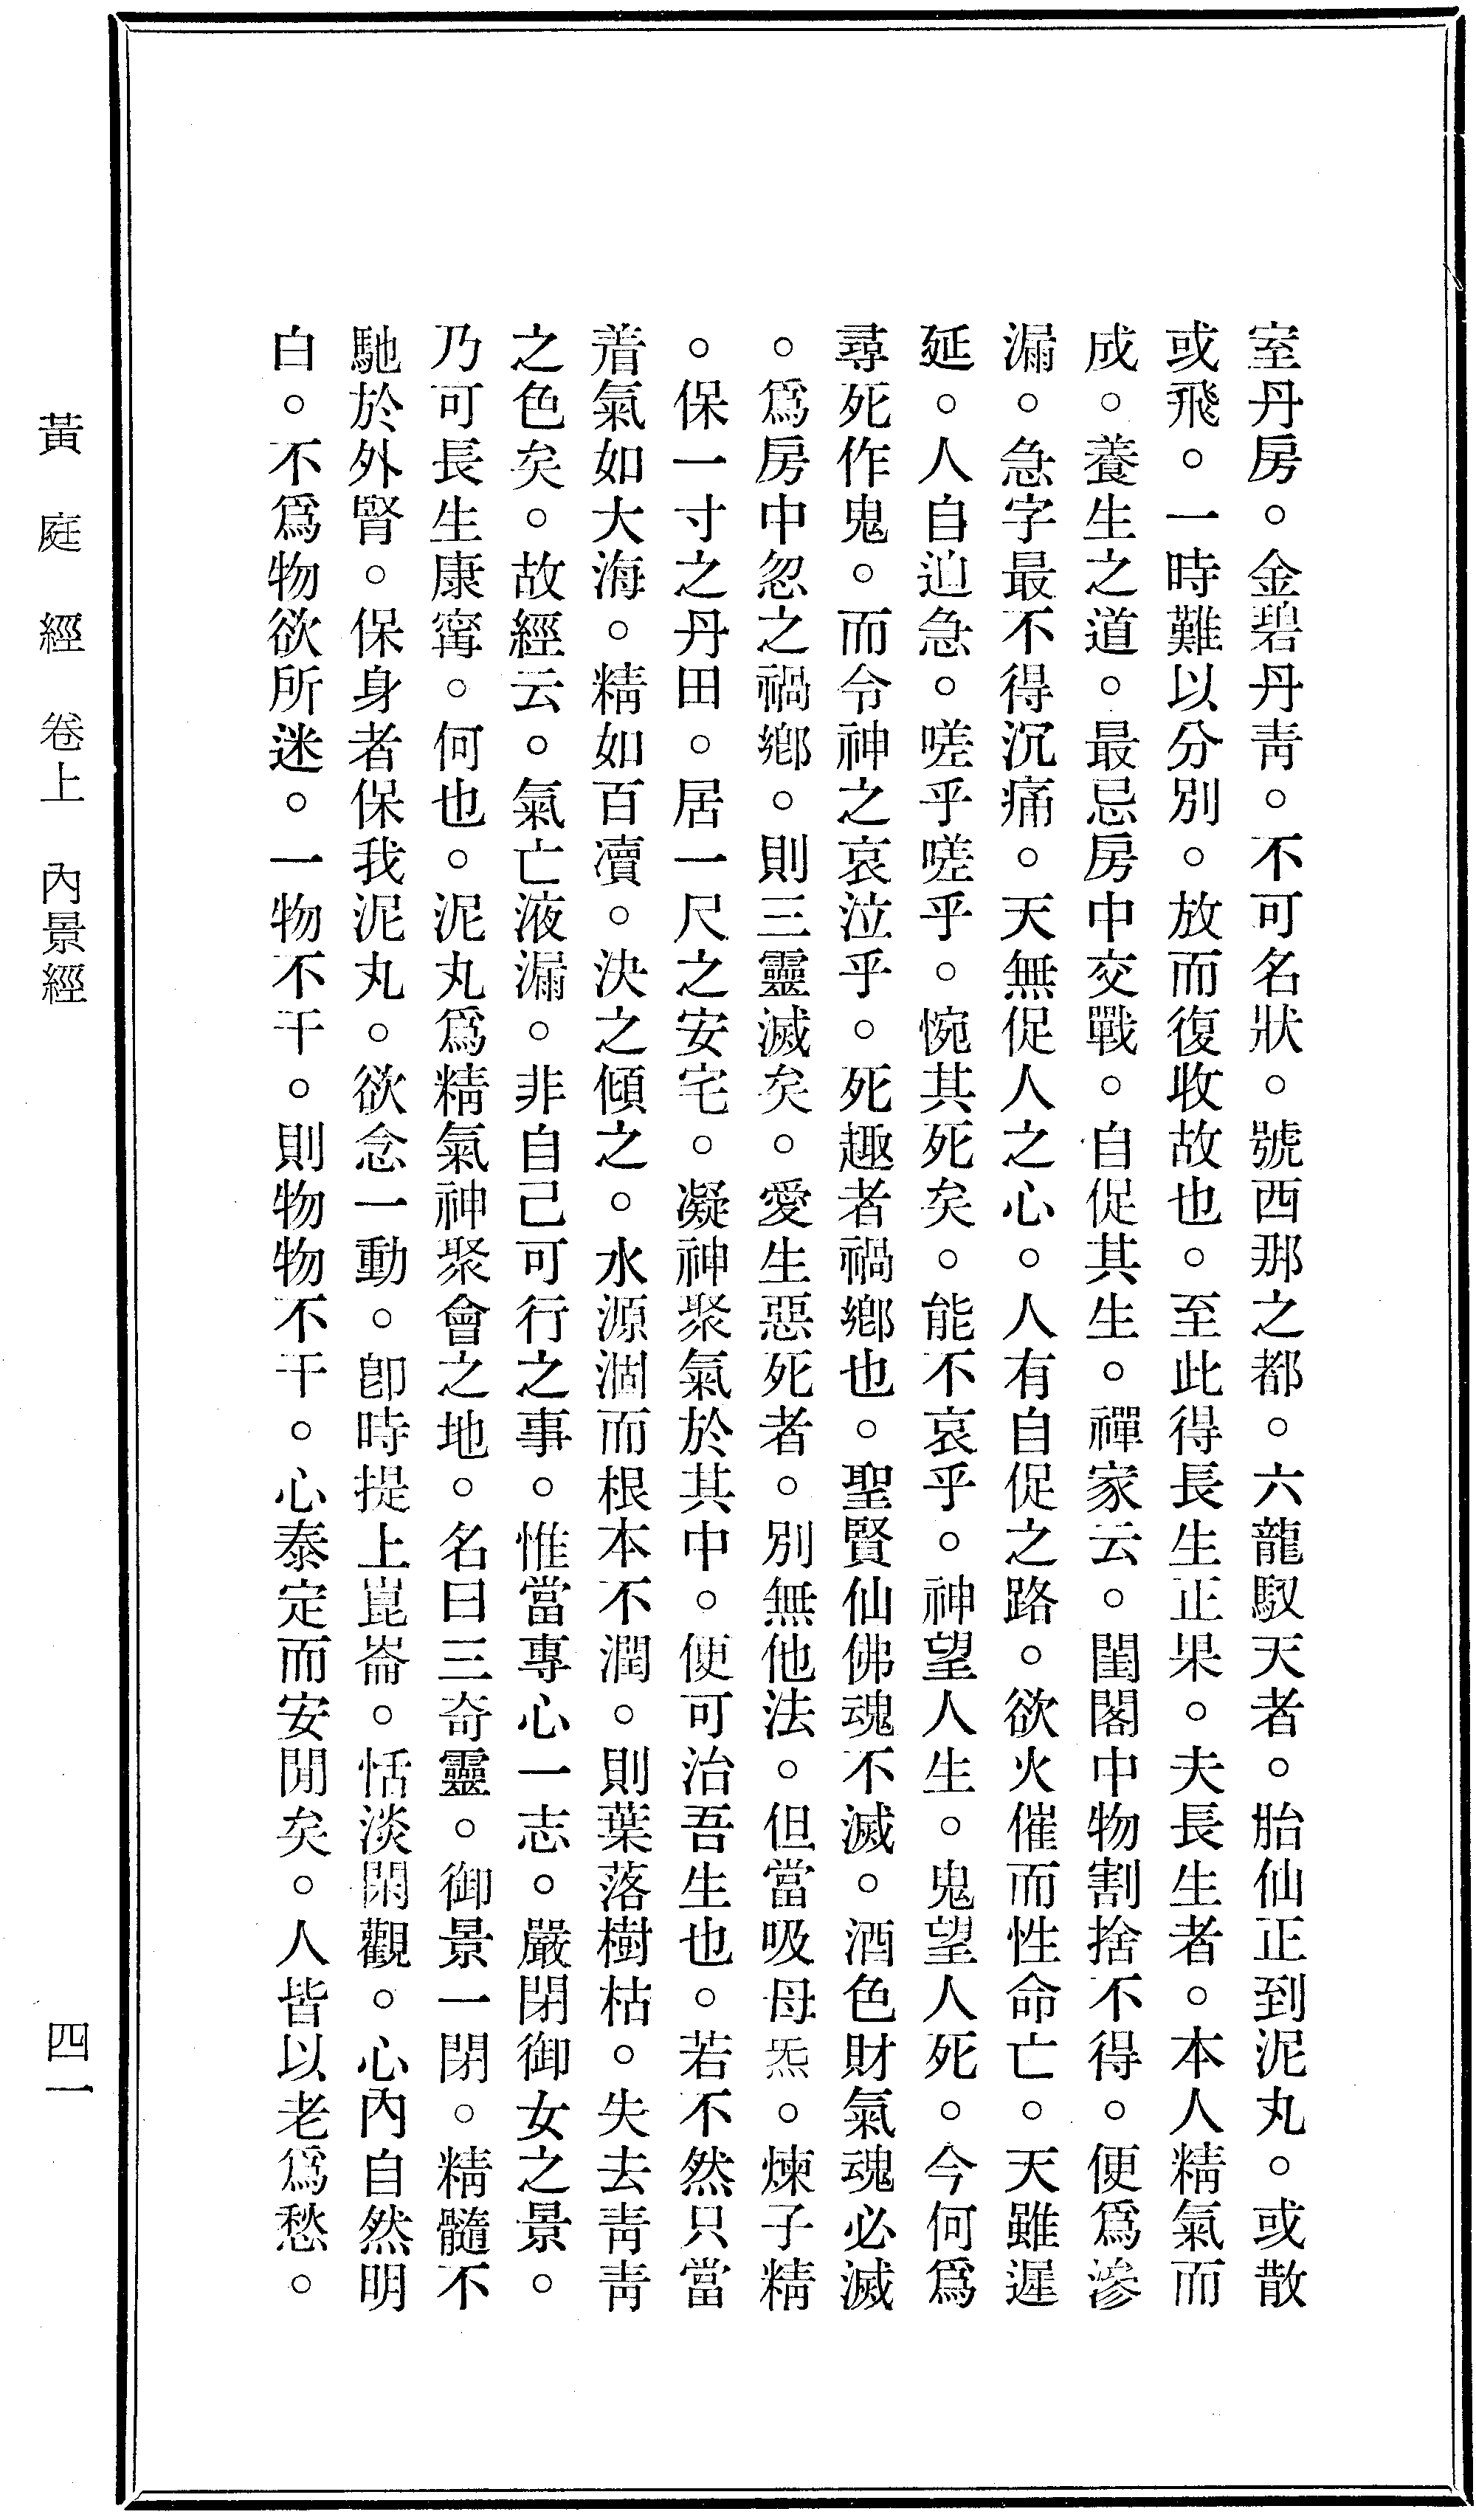 室丹房。金碧丹靑。不可名狀。號西那之都。六龍馭天者。胎仙正到泥丸。或散
或飛。一時難以分別。放而復收故也。至此得長生正果。夫長生者。本人精氣而
成。養生之道。最忌房中交戰。自促其生。禪家云。閨閣中物割捨不得。便爲滲
漏。急字最不得沉痛。天無促人之心。人有自促之路。欲火催而性命亡。天雖遲
延。人自迫急。嗟乎嗟乎。惋其死矣。能不哀乎。神望人生。鬼望人死。今何爲
尋死作鬼。而令神之哀泣乎。死趣者禍鄕也。聖賢仙佛魂不滅。酒色財氣魂必滅
。爲房中忽之禍鄕。則三靈滅矣。愛生惡死者。別無他法。但當吸母炁。煉子精
。保一寸之丹田。居一尺之安宅。凝神聚氣於其中。便可治吾生也。若不然只當
着氣如大海。精如百凟。決之傾之。水源涸而根本不潤。則葉落樹枯。失去靑靑
之色矣。故經云。氣亡液漏。非自己可行之事。惟當專心一志。嚴閉御女之景。
乃可長生康寗。何也。泥丸爲精氣神聚會之地。名曰三奇靈。御景一閉。精髓不
馳於外腎。保身者保我泥丸。欲念一動。卽時提上崑崙。恬淡閑觀。心內自然明
白。不爲物欲所迷。一物不干。則物物不干。心泰定而安閒矣。人皆以老爲愁。
黃庭經 卷上 內景經 四一